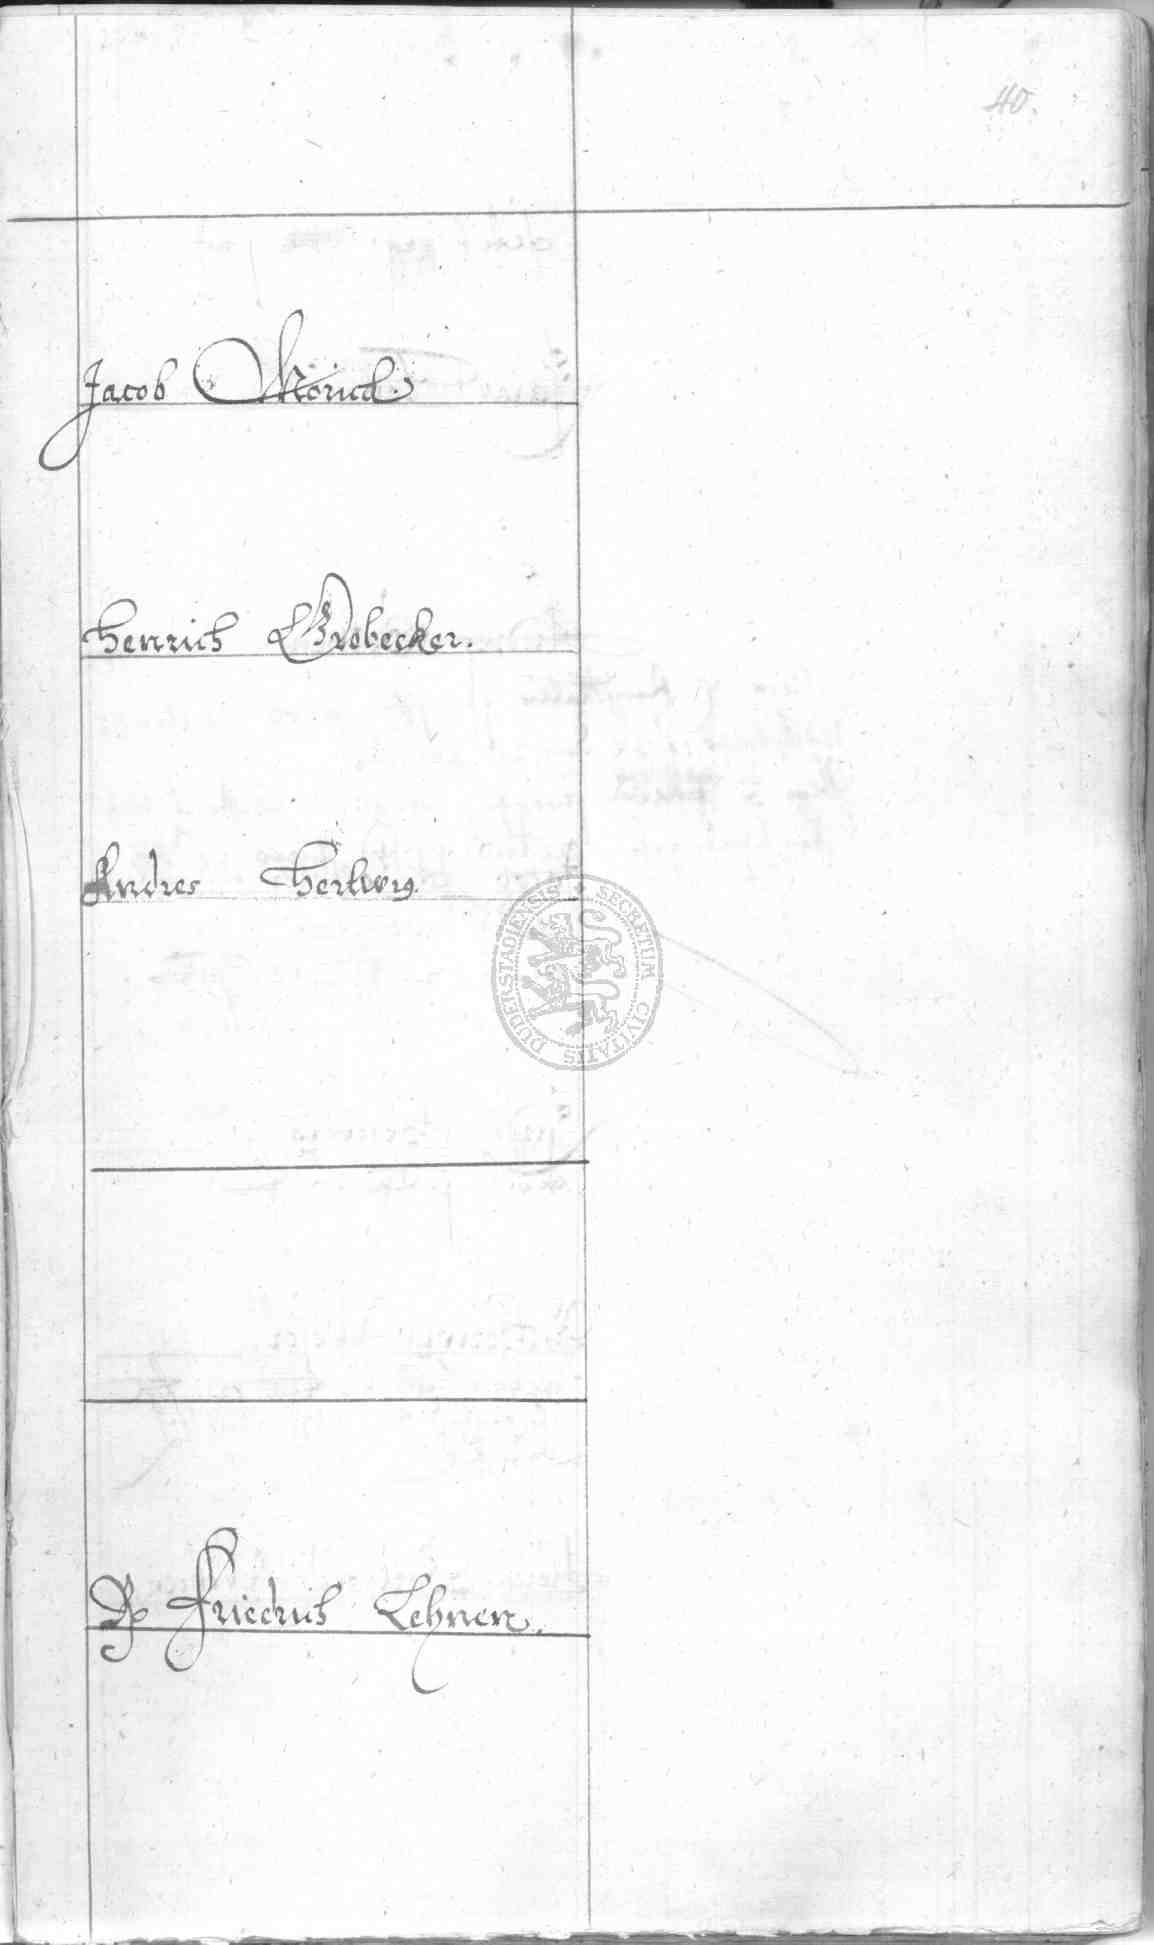 40.
Jacob Morick.
Henrich Grobecker.
Andres Hertwig.
SECRETUM CIVITATIS DUDERSTADIENSIS
Friedrich Lehnen.